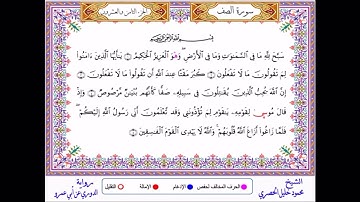 سورة الصف
الجزء الثامن والعشرون
بسم الله الرحمن الرحيم
سَبَّحَ لِلَّهِ مَا فِي السَّمَٰوَٰتِ وَمَا فِي الْأَرْضِ وَهْوَ الْعَزِيزُ الْحَكِيمُ ١ يَٰأَيُّهَا الَّذِينَ ءَامَنُوا
لِمَ تَقُولُونَ مَا لَا تَفْعَلُونَ ٢ كَبُرَ مَقْتًا عِندَ اللَّهِ أَن تَقُولُوا مَا لَا تَفْعَلُونَ ٣
إِنَّ اللَّهَ يُحِبُّ الَّذِينَ يُقَٰتِلُونَ فِي سَبِيلِهِ صَفًّا كَأَنَّهُم بُنْيَٰنٌ مَّرْصُوصٌ ٤ وَإِذْ
قَالَ مُوسَىٰ لِقَوْمِهِ يَٰقَوْمِ لِمَ تُؤْذُونَنِي وَقَد تَّعْلَمُونَ أَنِّي رَسُولُ اللَّهِ إِلَيْكُمْ
فَلَمَّا زَاغُوا أَزَاغَ اللَّهُ قُلُوبَهُمْ وَاللَّهُ لَا يَهْدِي الْقَوْمَ الْفَٰسِقِينَ ٥
الشيخ
محمود خليل الحصري
الحرف المخالف لحفص
الإدغام
الإمالة
التقليل
رواية
الدوري عن أبي عمرو